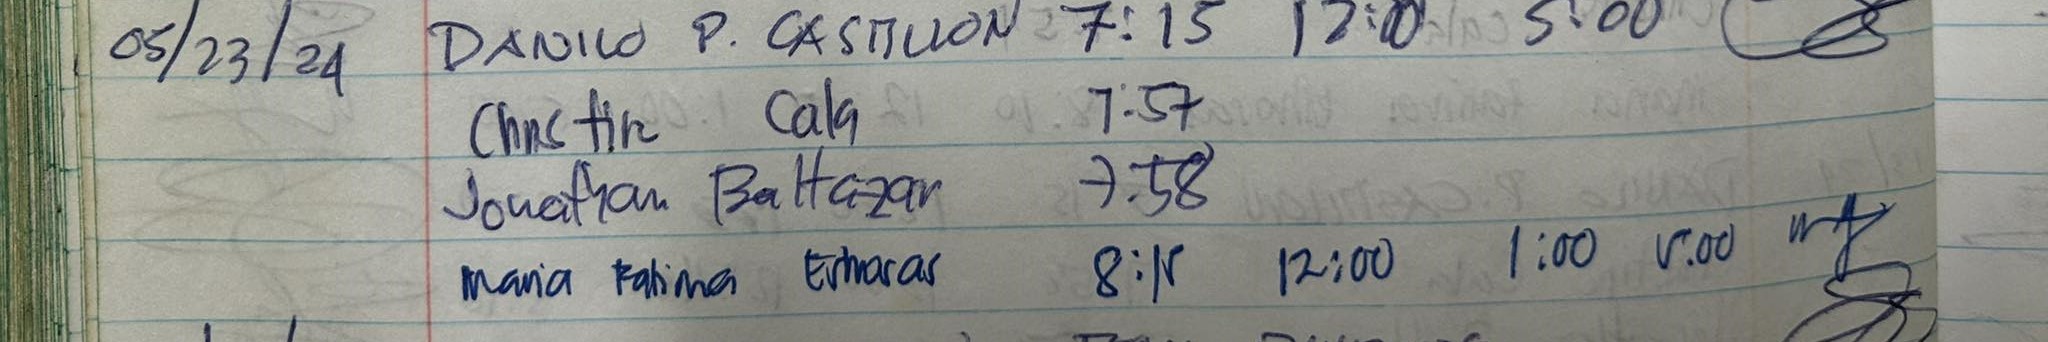 05/23/24 DANILO P. CASTILLON 7:15 12:00 5:00
Christine Cala 7:57
Jonathan Baltazar 7:58
Maria Fatima 8:15 12:00 1:00 5:00